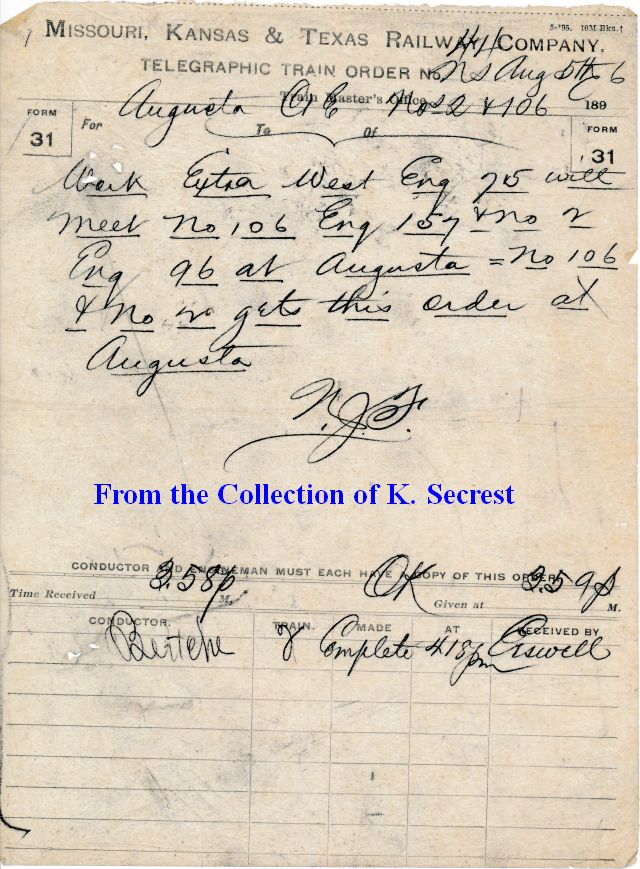 5-'95. 10M Bks.
MISSOURI, KANSAS & TEXAS RAILWAY COMPANY.
TELEGRAPHIC TRAIN ORDER No.
NS Aug 5th 6
Train Master's Office 189
FORM 31
For Augusta C&E Nos 2 & 106
To Of
FORM 31
Work Extra West Eng 75 will
meet No 106 Eng 157 & No 2
Eng 96 at Augusta = No 106
& No 2 gets this order at
Augusta
N.J.F.
From the Collection of K. Secrest
CONDUCTOR AND ENGINEMAN MUST EACH HAVE A COPY OF THIS ORDER.
Time Received 3.58p M. OK Given at 3.59p M.
CONDUCTOR. TRAIN. MADE AT RECEIVED BY
2 Complete 418pm